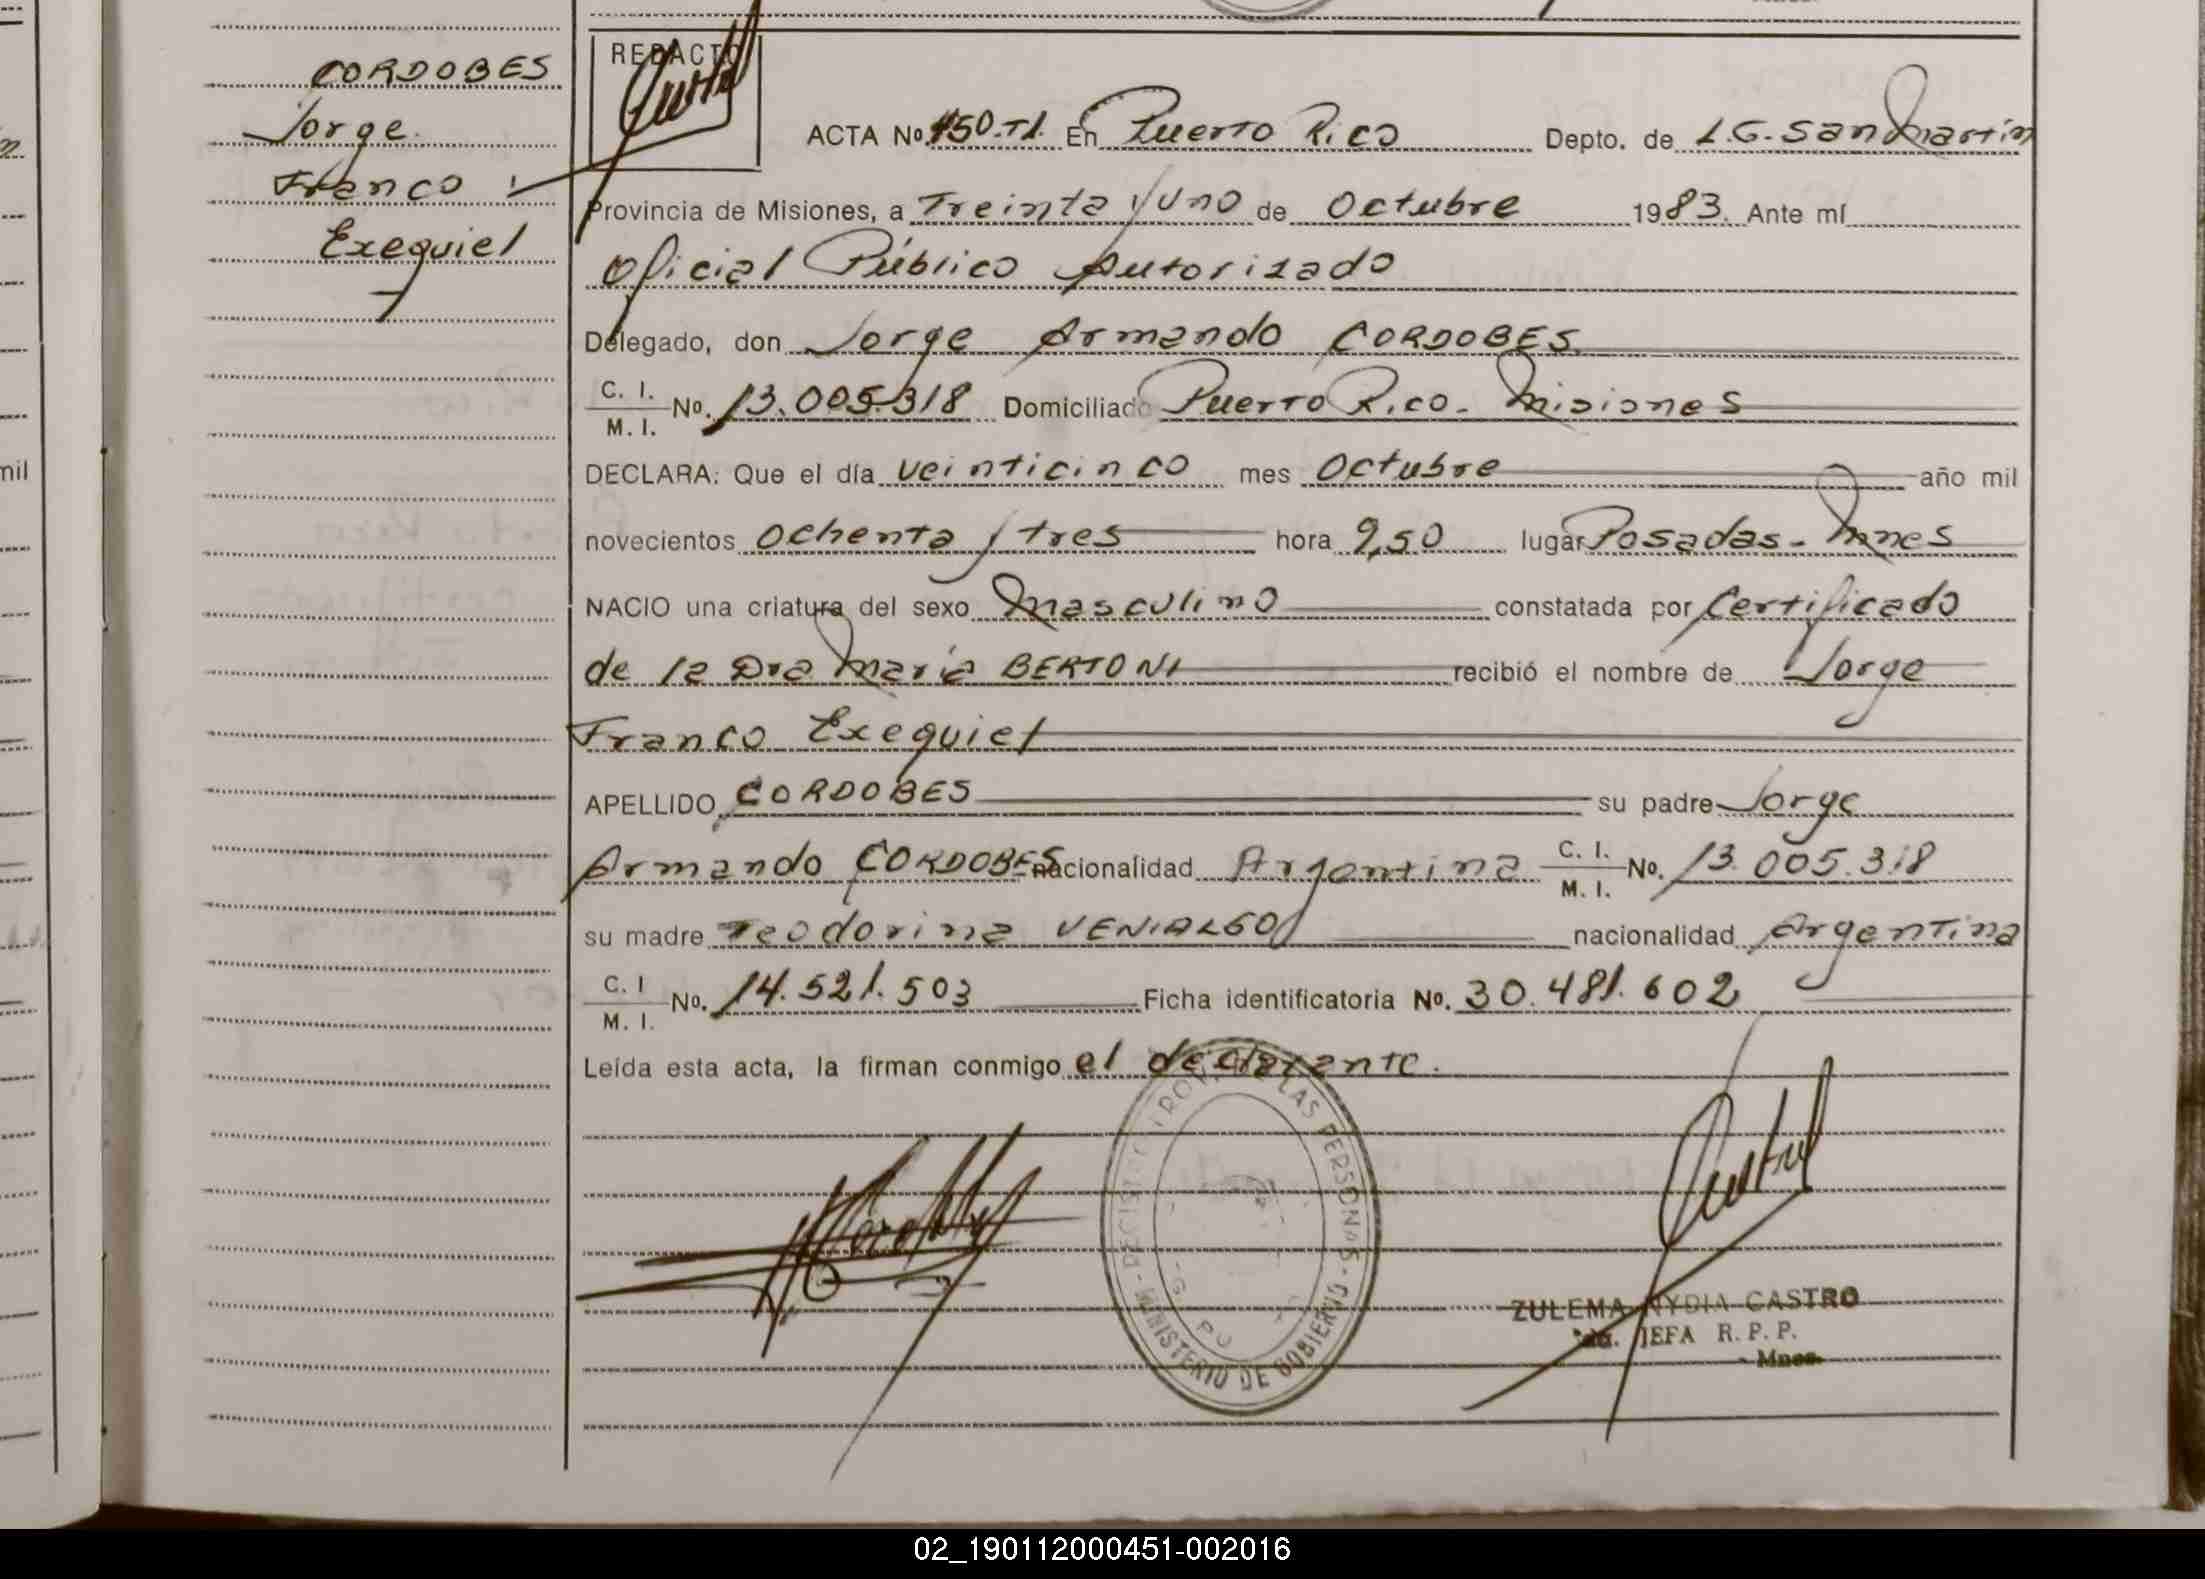 CORDOBES
Jorge
Franco
Exequiel
REDACTO
ACTA No. 150.T1. En Puerto Rico Depto. de L.G. San Martín
Provincia de Misiones, a Treinta y uno de Octubre 1983. Ante mí
Oficial Público Autorizado
Delegado, don Jorge Armando CORDOBES
C. I.
M. I. No. 13.005.318 Domiciliado Puerto Rico - Misiones
DECLARA: Que el día veinticinco mes Octubre año mil
novecientos ochenta y tres hora 9,50 lugar Posadas - Mnes
NACIO una criatura del sexo Masculino constatada por Certificado
de la Dra María BERTONI recibió el nombre de Jorge
Franco Exequiel
APELLIDO CORDOBES su padre Jorge
Armando CORDOBES nacionalidad Argentina C. I. M. I. No. 13.005.318
su madre Teodorina VENIALGO nacionalidad Argentina
C. I
M. I. No. 14.521.503 Ficha identificatoria No. 30.481.602
Leída esta acta, la firman conmigo el declarante.
DE LAS PERSONAS - MINISTERIO DE GOBIERNO
ZULEMA NYDIA CASTRO
JEFA R. P. P.
Mnes
mil
02_190112000451-002016